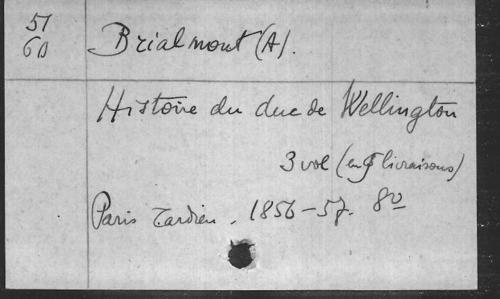 51
6D
Brialmont (A).
Histoire du duc de Wellington
3 vol (en livraisons)
Paris Tardieu. 1856-57. 8º